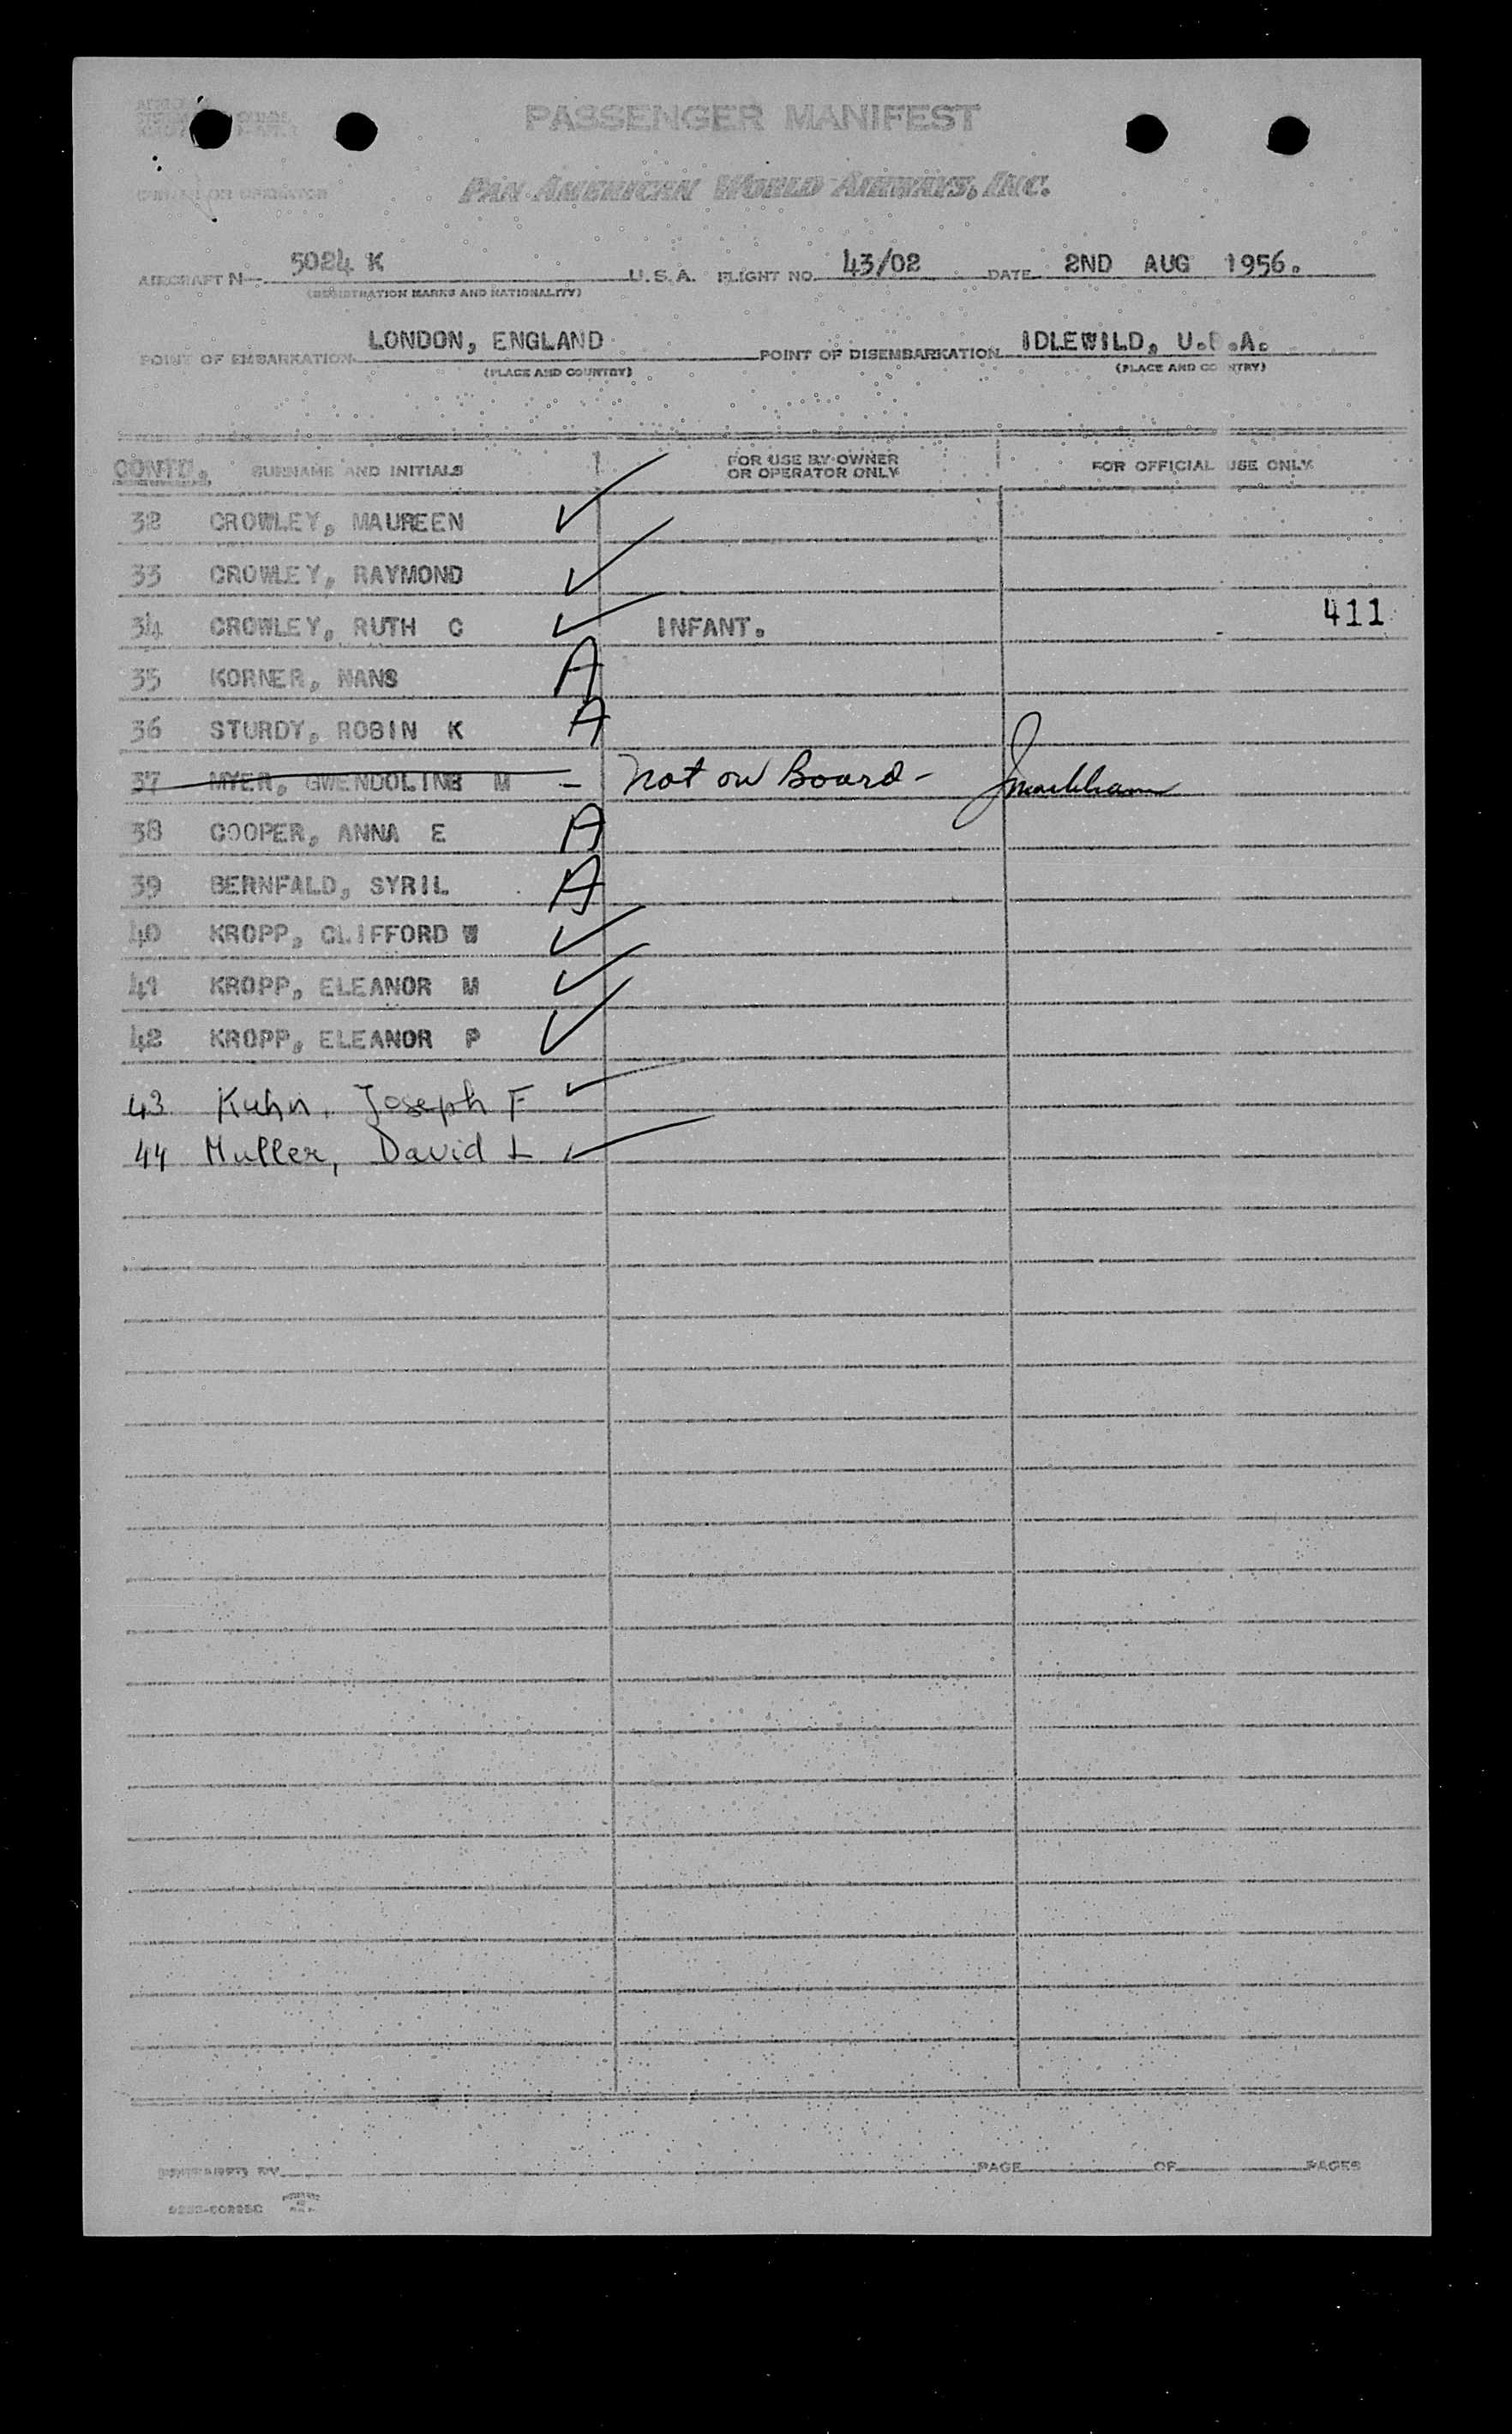 PASSENGER MANIFEST
PAN AMERICAN WORLD AIRWAYS, INC.
OWNER OR OPERATOR
AIRCRAFT N 5024 K U.S.A. FLIGHT NO. 43/02 DATE 2ND AUG 1956.
(REGISTRATION MARKS AND NATIONALITY)
POINT OF EMBARKATION LONDON, ENGLAND POINT OF DISEMBARKATION IDLEWILD, U.S.A.
(PLACE AND COUNTRY) (PLACE AND COUNTRY)
CONTD. SURNAME AND INITIALS FOR USE BY OWNER OR OPERATOR ONLY FOR OFFICIAL USE ONLY
32 CROWLEY, MAUREEN ✓
33 CROWLEY, RAYMOND ✓
34 CROWLEY, RUTH C ✓ INFANT. 411
35 KORNER, HANS A
36 STURDY, ROBIN K A
37 MYER, GWENDOLINE M - Not on Board -
38 COOPER, ANNA E A
39 BERNFALD, SYRIL A
40 KROPP, CLIFFORD W ✓
41 KROPP, ELEANOR M ✓
42 KROPP, ELEANOR P ✓
43 Kuhn, Joseph F ✓
44 Muller, David L ✓
PAGE OF PAGES